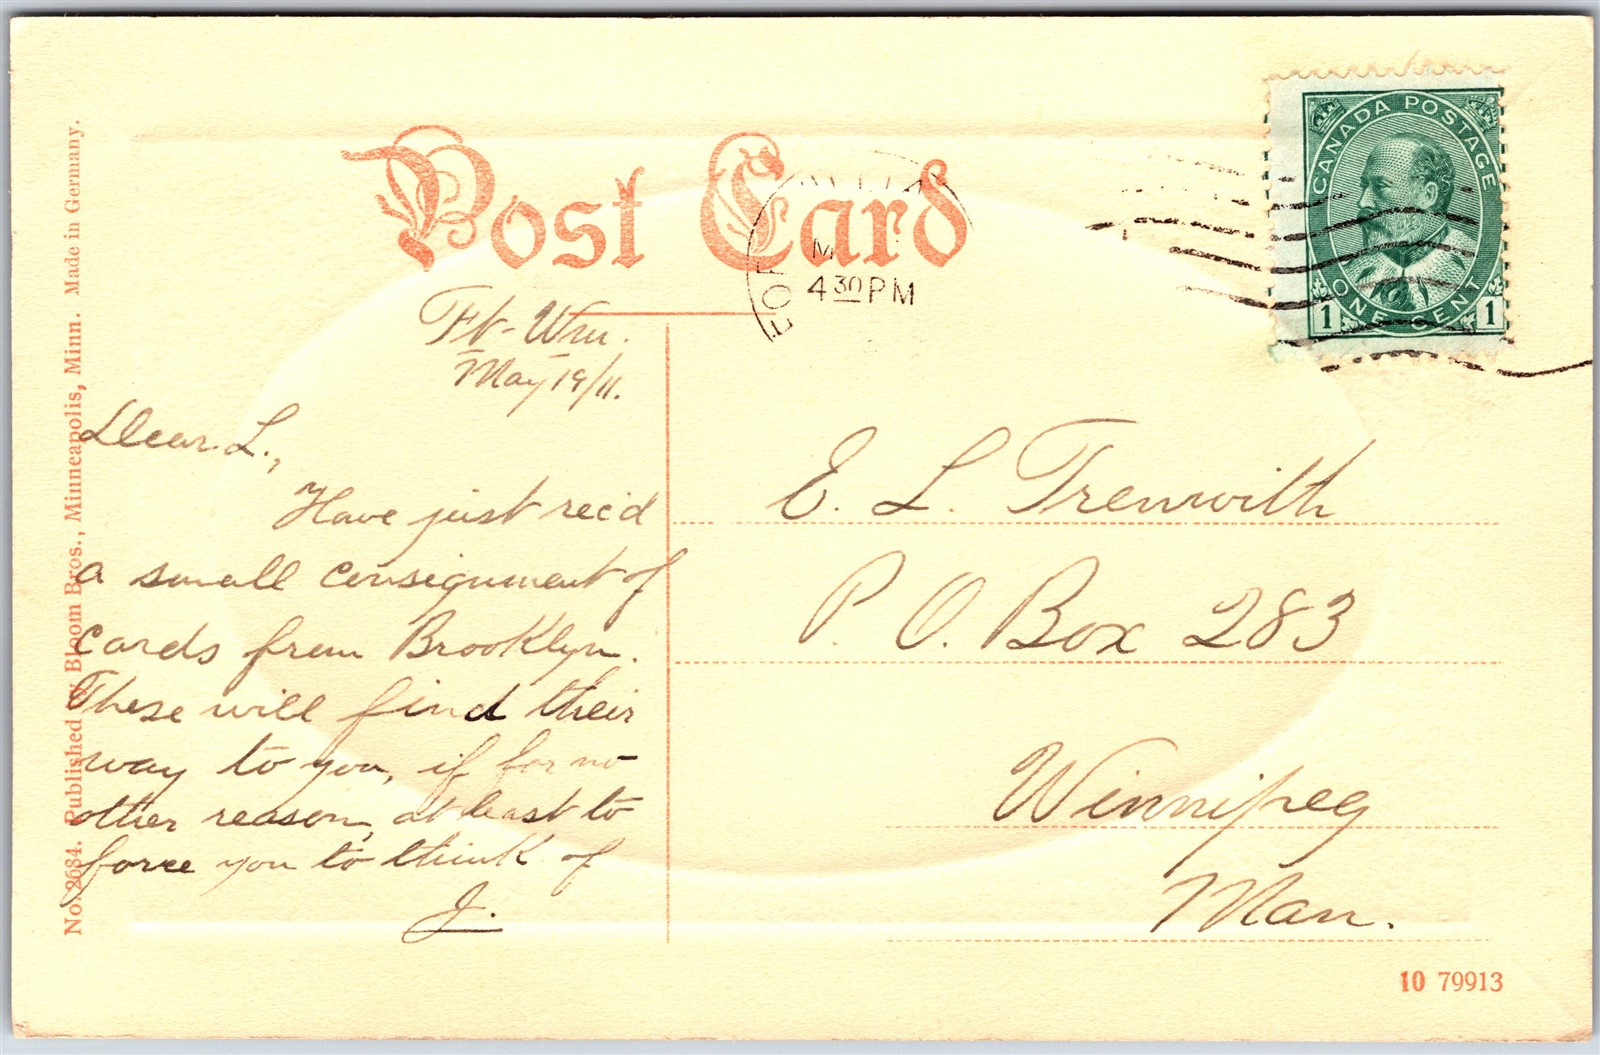 No. 2684. Published by Bloom Bros., Minneapolis, Minn. Made in Germany.
Post Card
M
4 30 PM
CANADA POSTAGE
ONE CENT
1 1
Ft. Wm.
May 19/11.
Dear L.,
Have just rec'd
a small consignment of
cards from Brooklyn.
These will find their
way to you, if for no
other reason, at least to
force you to think of
J.
E. L. Trenwith
P. O. Box 283
Winnipeg
Man.
10 79913